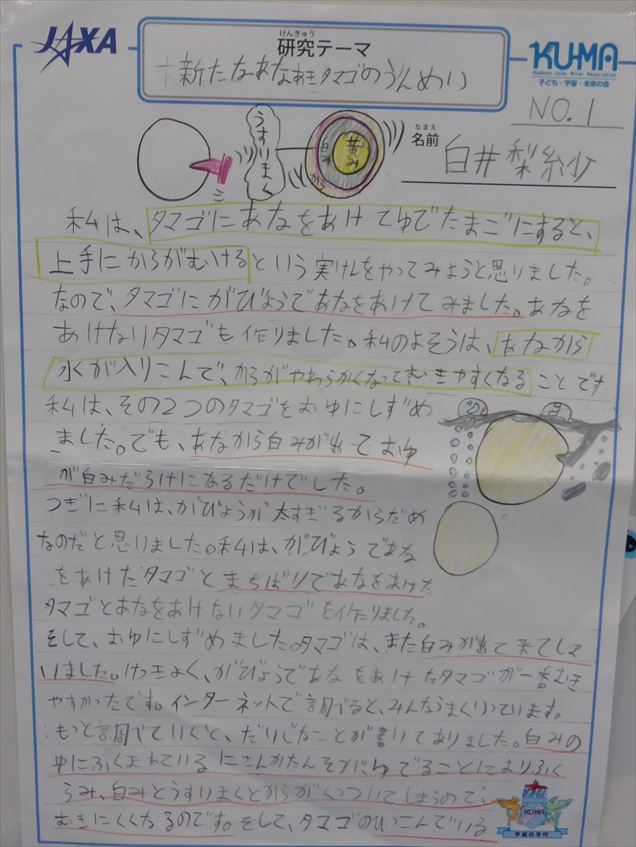 JAXA
けんきゅう
研究テーマ
新たなあなあきタマゴのうんめい
KU-MA
Kodomo Uchu Mirai Association
子ども・宇宙・未来の会
NO.1
うすいまく
白み
黄み
から
なまえ
名前
白井梨紗
私は、タマゴにあなをあけてゆでたまごにすると、
上手にからがむけるという実けんをやってみようと思いました。
なので、タマゴにがびょうであなをあけてみました。あなを
あけないタマゴも作りました。私のよそうは、あなから
水が入りこんで、からがやわらかくなってむきやすくなることです
私は、その2つのタマゴをおゆにしずめ
ました。でも、あなから白みが出ておゆ
が白みだらけになるだけでした。
つぎに私は、がびょうが太すぎるからだめ
なのだと思いました。私は、がびょうであな
をあけたタマゴとまちばりであなをあけた
タマゴとあなをあけないタマゴを作りました。
そして、おゆにしずめました。タマゴは、また白みが出て来てしま
いました。けっきょく、がびょうであなをあけたタマゴが一番むき
やすかったです。インターネットで調べると、みんなうまくいっています。
もっと調べていくと、だいじなことが書いてありました。白みの
中にふくまれているにさんかたんそがゆでることによりふく
らみ、白みとうすいまくとからがくっついてしまうので、
むきにくくなるのです。そして、タマゴのひっこんでいる
KU-MA
宇宙の学校